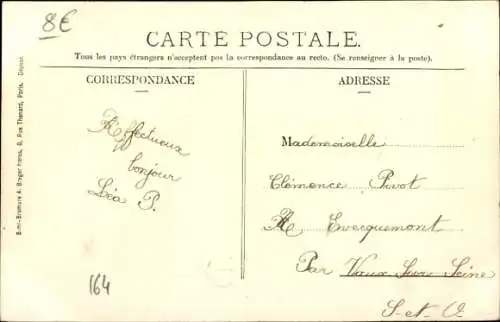 8€
CARTE POSTALE.
Tous les pays étrangers n'acceptent pas la correspondance au recto. (Se renseigner à la poste).
CORRESPONDANCE
Affectueux
bonjour
Léa P.
164
ADRESSE
Mademoiselle
Clémence Pivot
Evecquemont
Par Vaux Sur Seine
S-et-O
Simi-Bromure A. Breger frères, 9, Rue Thenard, Paris. Déposé.